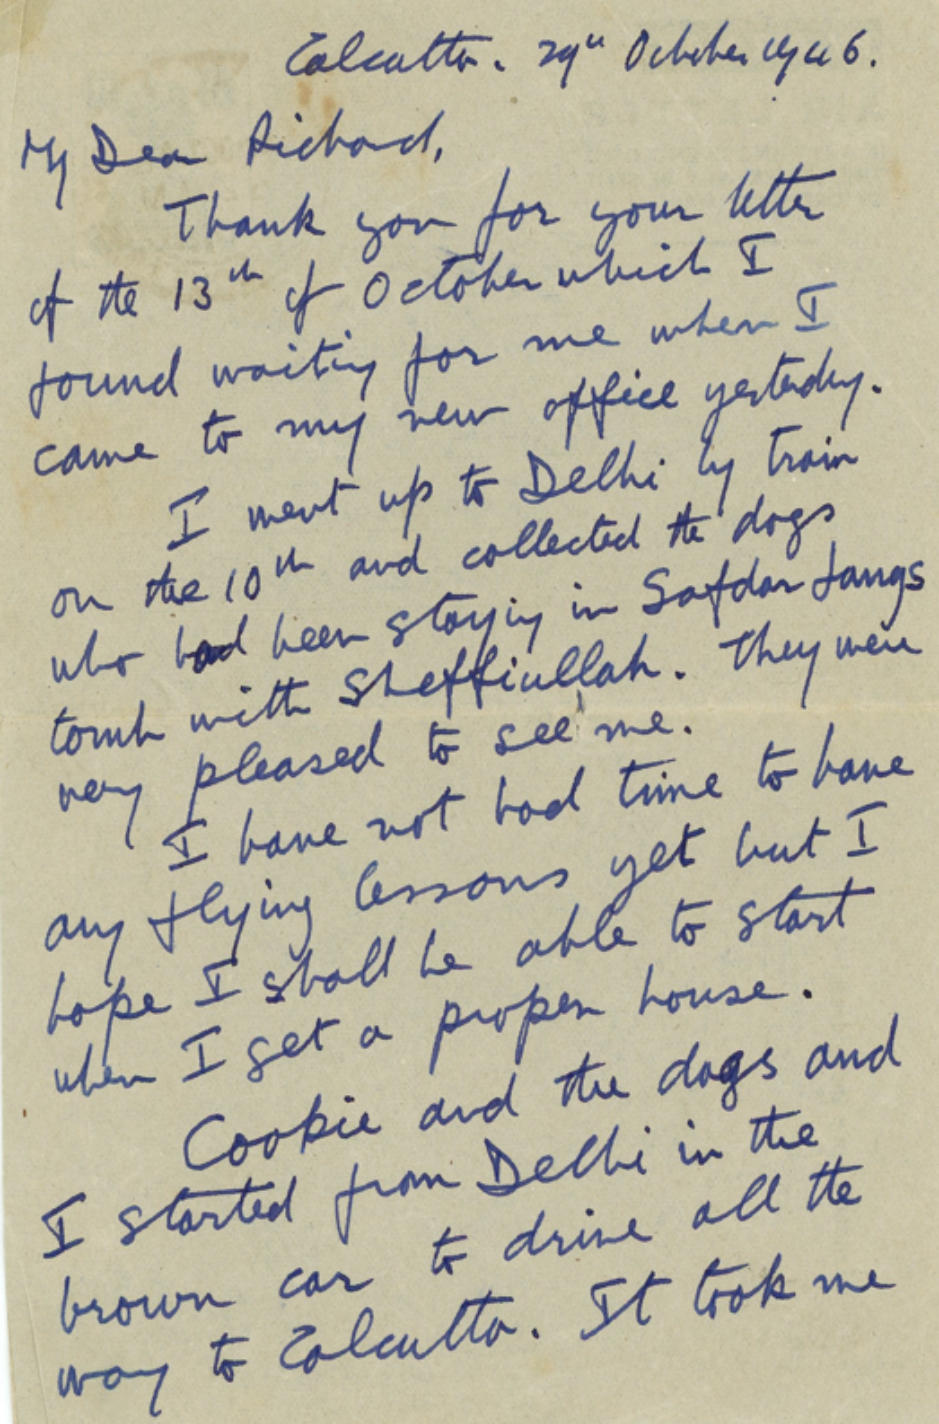 Calcutta. 29th October 1946.
My Dear Richard,
Thank you for your letter
of the 13th of October which I
found waiting for me when I
came to my new office yesterday.
I went up to Delhi by train
on the 10th and collected the dogs
who had been staying in Safdar Jangs
tomb with Sheffiullah. They were
very pleased to see me.
I have not had time to have
any flying lessons yet but I
hope I shall be able to start
when I get a proper house.
Cookie and the dogs and
I started from Delhi in the
brown car to drive all the
way to Calcutta. It took me